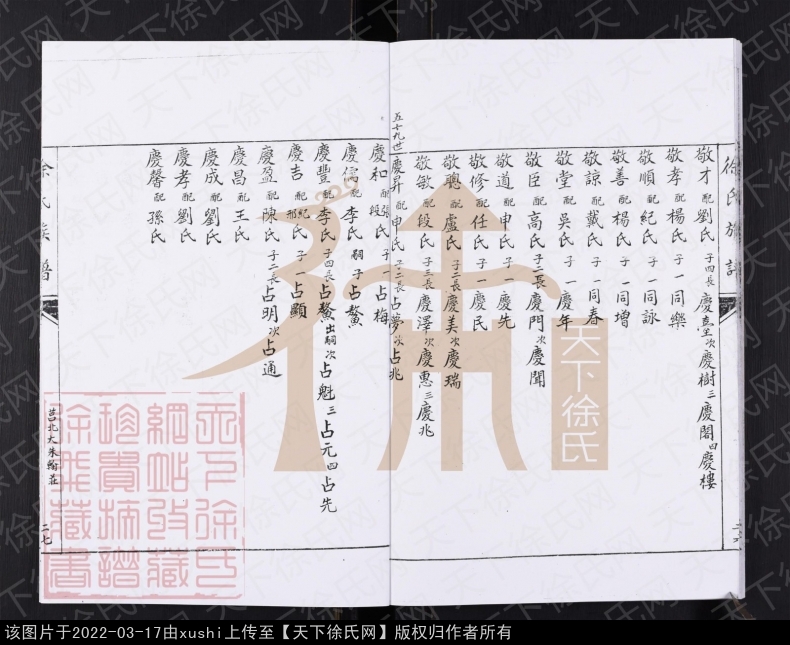 徐氏族譜
敬才 配 劉氏 子四長 慶臺 次 慶樹 三 慶閣 四 慶樓
敬孝 配 楊氏 子一 同樂
敬順 配 紀氏 子一 同詠
敬善 配 楊氏 子一 同增
敬諒 配 戴氏 子一 同春
敬堂 配 吳氏 子一 慶年
敬臣 配 高氏 子二長 慶門 次 慶聞
敬道 配 申氏 子一 慶先
敬修 配 任氏 子一 慶民
敬聰 配 盧氏 子二長 慶美 次 慶瑞
敬敏 配 段氏 子三長 慶澤 次 慶惠 三 慶兆
五十九世 慶昇 配 申氏 子二長 占夢 次 占兆
慶和 配 張 段 氏 子一 占梅
慶儒 配 李氏 嗣子 占鰲
慶豐 配 李氏 子四長 占鰲 出嗣 次 占魁 三 占元 四 占先
慶吉 配 紀 邢 氏 子一 占顯
慶盈 配 陳氏 子二長 占明 次 占通
慶昌 配 王氏
慶成 配 劉氏
慶孝 配 劉氏
慶馨 配 孫氏
徐氏族譜
莒北大朱翰莊
二七
天下徐氏
天下徐氏網站收藏珍貴族譜徐飛藏書
天下徐氏网
该图片于2022-03-17由xushi上传至【天下徐氏网】版权归作者所有